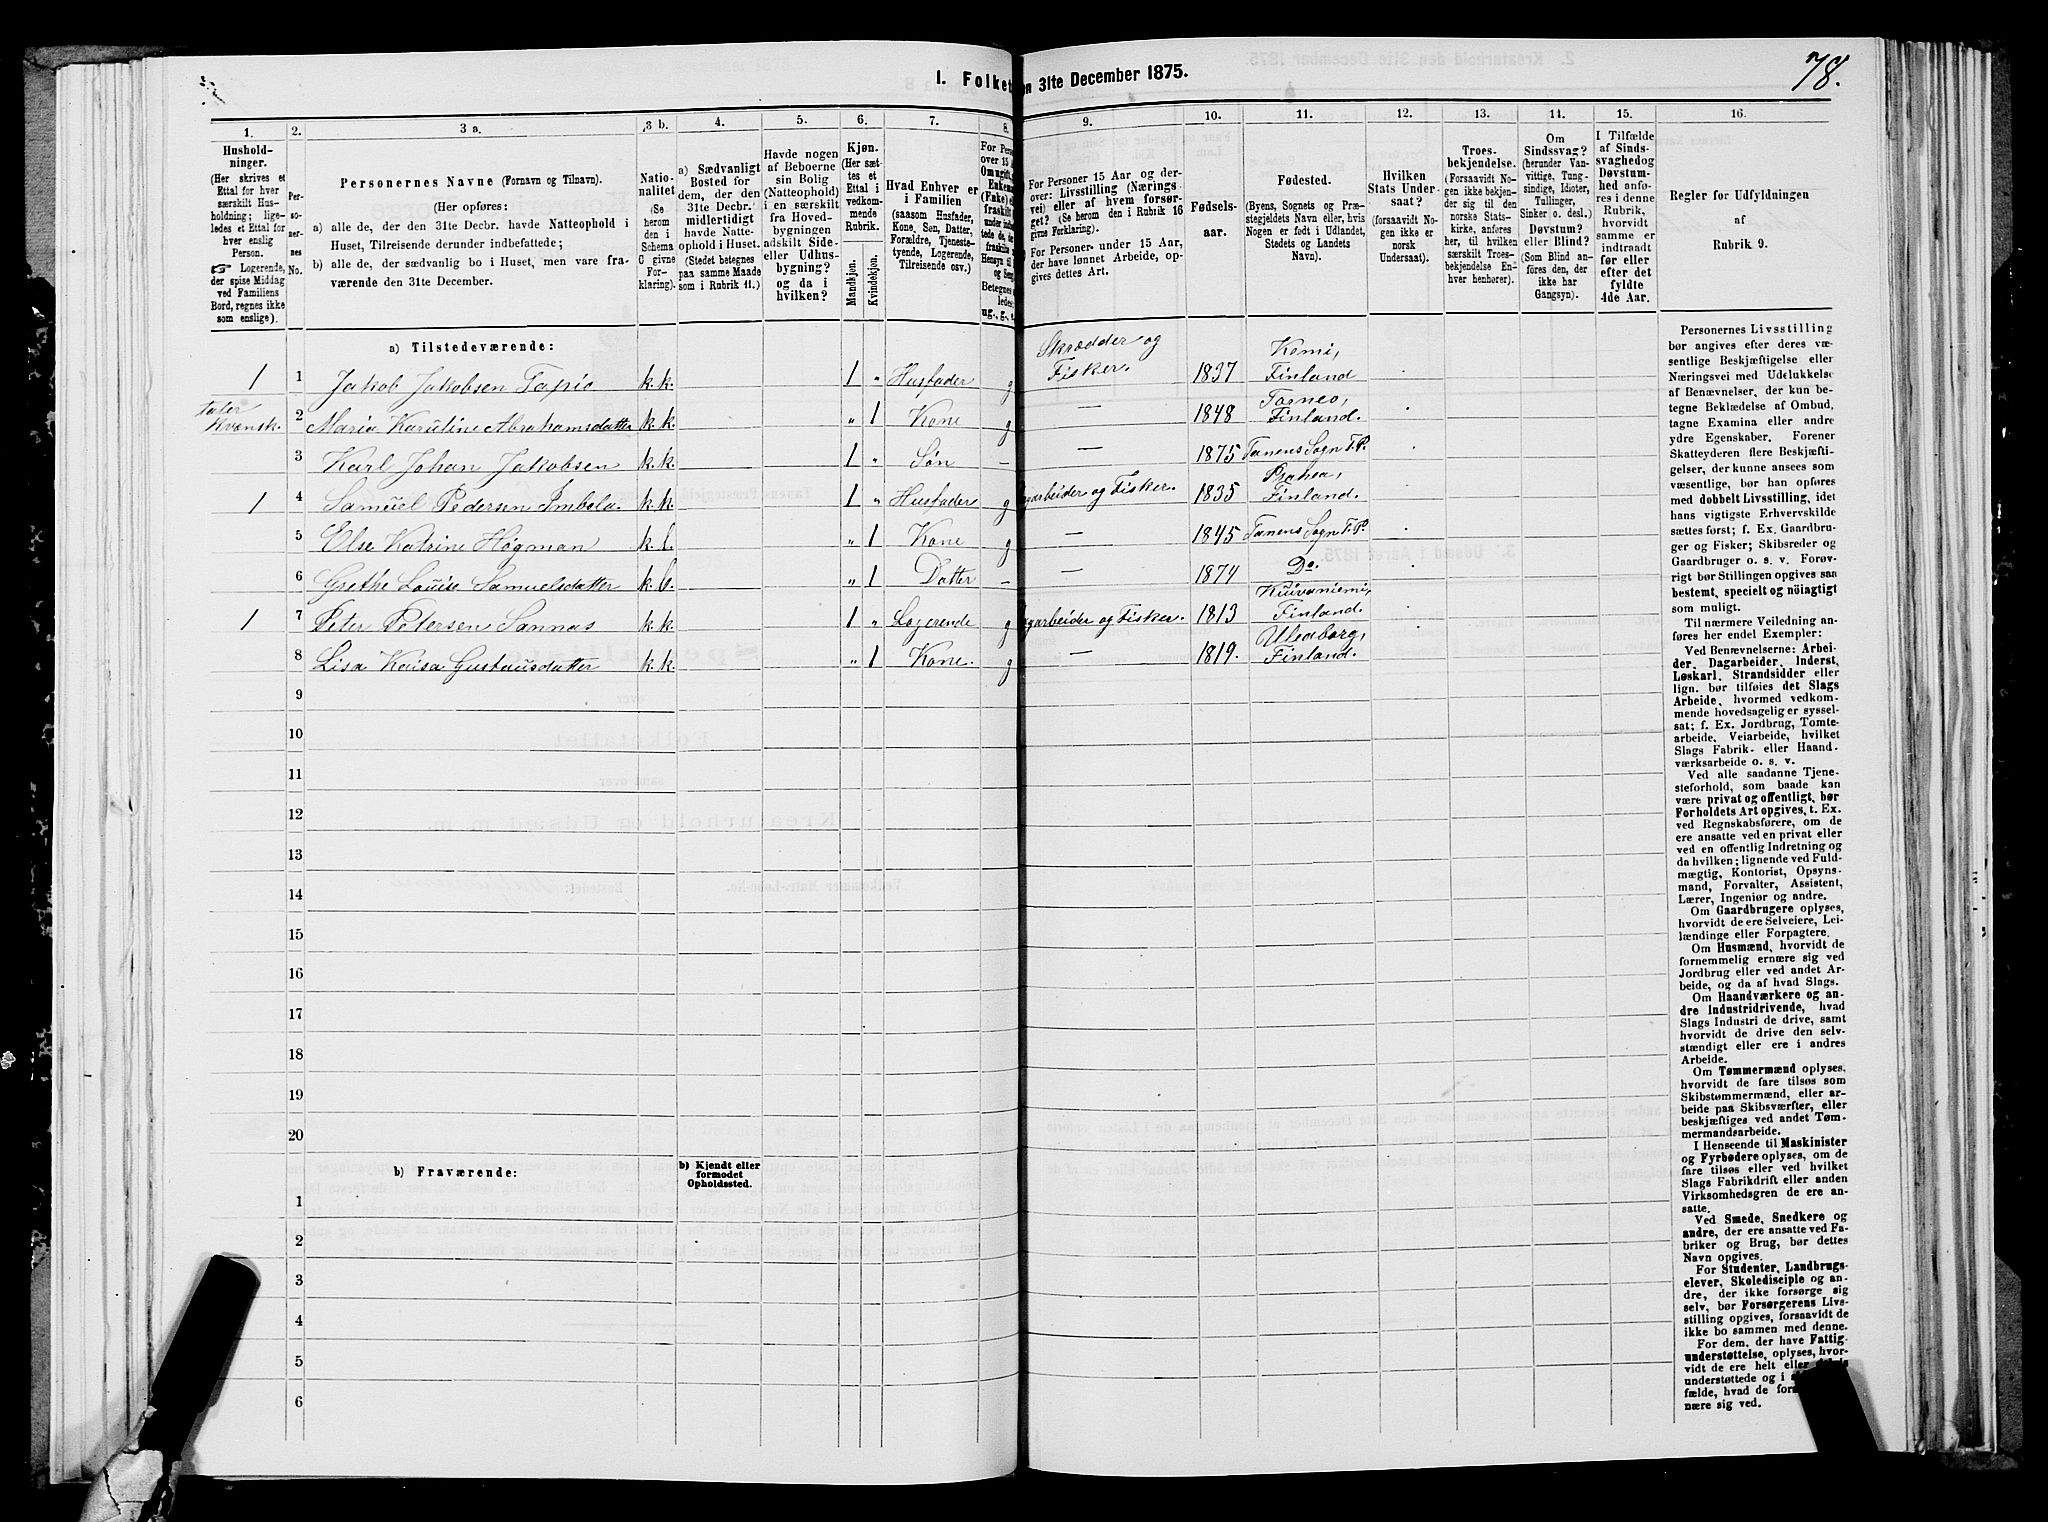 78.
1. Folket
n 31te December 1875.
1. 2. 3 a. 3 b. 4. 5. 6. 7. 8. 9. 10. 11. 12. 13. 14. 15. 16.
Hushold-
ninger.
(Her skrives et
Ettal for hver
særskilt Hus-
holdning; lige-
ledes et Ettal for
hver enslig
Person.
☞ Logerende,
der spise Middag
ved Familiens
Bord, regnes ikke
som enslige).
Per-
so-
ner-
nes
No.
Personernes Navne (Fornavn og Tilnavn).
(Her opføres:
a) alle de, der den 31te Decbr. havde Natteophold i
Huset, Tilreisende derunder indbefattede;
b) alle de, der sædvanlig bo i Huset, men vare fra-
værende den 31te December.
Natio-
nalitet
(Se
herom
den i
Schema
C givne
For-
klaring).
a) Sædvanligt
Bosted for
dem, der den
31te Decbr.
midlertidigt
havde Natte-
ophold i Huset.
(Stedet betegnes
paa samme Maade
som i Rubrik 11.)
Havde nogen
af Beboerne
sin Bolig
(Natteophold)
i en særskilt
fra Hoved-
bygningen
adskilt Side-
eller Udhus-
bygning?
og da i
hvilken?
Kjøn.
(Her sæt-
tes et
Ettal i
vedkom-
mende
Rubrik.
Mandkjøn.
Kvindekjøn.
Hvad Enhver er
i Familien
(saasom Husfader,
Kone, Søn, Datter,
Forældre, Tjeneste-
tyende, Logerende,
Tilreisende osv.)
For Perso
over 15 Aa
Omugift,
Enkema
(Enke) el
fraskilt
Betegnes
ledes:
ug., g., e.
For Personer 15 Aar og der-
over: Livsstilling (Nærings-
vei) eller af hvem forsør-
get? (Se herom den i Rubrik 16
givne Forklaring).
For Personer under 15 Aar,
der have lønnet Arbeide, op-
gives dettes Art.
Fødsels-
aar.
Fødested.
(Byens, Sognets og Præ-
stegjeldets Navn eller, hvis
Nogen er født i Udlandet,
Stedets og Landets
Navn).
Hvilken
Stats Under-
saat?
(forsaavidt No-
gen ikke er
norsk
Undersaat).
Troes-
bekjendelse.
(Forsaavidt No-
gen ikke bekjen-
der sig til den
norske Stats-
kirke, anføres
her, til hvilken
særskilt Troes-
bekjendelse En-
hver henhører).
Om
Sindssvag?
(herunder Van-
vittige, Tung-
sindige, Idioter,
Tullinger,
Sinker o. desl.)
Døvstum?
eller Blind?
(Som Blind an-
føres den, der
ikke har
Gangsyn).
I Tilfælde
af Sinds-
svaghed og
Døvstum-
hed anfø-
res i denne
Rubrik,
hvorvidt
samme er
indtraadt
før eller
efter det
fyldte
4de Aar.
Regler for Udfyldningen
af
Rubrik 9.
a) Tilstedeværende:
1 1 Jakob Jakobsen Tapio k.k. 1 „ Husfader g Skrædder og Fisker. 1837 Kemi, Finland
taler Kvænsk. 2 Maria Karoline Abrahamsdatter k.k. „ 1 Kone g — 1848 Torneo, Finland.
3 Karl Johan Jakobsen k.k. 1 „ Søn — — 1875 Tanens Sogn T.P.
1 4 Samuel Pedersen Imbola k.k. 1 „ Husfader g garbeider og Fisker. 1835 Prahea, Finland.
5 Else Katrine Høgman k.l. „ 1 Kone g — 1845 Tanens Sogn T.P.
6 Grethe Louise Samuelsdatter k.l. „ 1 Datter — — 1874 Do.
1 7 Peter Petersen Sannas k.k. 1 „ Logerende g garbeider og Fisker. 1813 Kuivaniemi, Finland.
8 Lisa Kaisa Gustausdatter k.k. „ 1 Kone. g — 1819. Uleaborg, Finland.
9
10
11
12
13
14
15
16
17
18
19
20
b) Fraværende:
b) Kjendt eller
formodet
Opholdssted.
1
2
3
4
5
6
Personernes Livsstilling
bør angives efter deres væ-
sentlige Beskjæftigelse eller
Næringsvei med Udelukkelse
af Benævnelser, der kun be-
tegne Beklædelse af Ombud,
tagne Examina eller andre
ydre Egenskaber. Forener
Skatteyderen flere Beskjæfti-
gelser, der kunne ansees som
væsentlige, bør han opføres
med dobbelt Livsstilling, idet
hans vigtigste Erhvervskilde
sættes først; f. Ex. Gaardbru-
ger og Fisker; Skibsreder og
Gaardbruger o. s. v. Forøv-
rigt bør Stillingen opgives saa
bestemt, specielt og nøiagtigt
som muligt.
Til nærmere Veiledning an-
føres her endel Exempler:
Ved Benævnelserne: Arbei-
der, Dagarbeider, Inderst,
Løskarl, Strandsidder eller
lign. bør tilføies det Slags
Arbeide, hvormed vedkom-
mende hovedsagelig er syssel-
sat; f. Ex. Jordbrug, Tomte-
arbeide, Veiarbeide, hvilket
Slags Fabrik- eller Haand-
værksarbeide o. s. v.
Ved alle saadanne Tjene-
steforhold, som baade kan
være privat og offentligt, bør
Forholdets Art opgives, t. Ex.
ved Regnskabsførere, om de
ere ansatte ved en privat eller
ved en offentlig Indretning og
da hvilken; lignende ved Fuld-
mægtig, Kontorist, Opsyns-
mand, Forvalter, Assistent,
Lærer, Ingeniør og andre.
Om Gaardbrugere oplyses,
hvorvidt de ere Selveiere, Lei-
lændinge eller Forpagtere.
Om Husmænd, hvorvidt de
fornemmelig ernære sig ved
Jordbrug eller ved andet Ar-
beide, og da af hvad Slags.
Om Haandværkere og an-
dre Industridrivende, hvad
Slags Industri de drive, samt
hvorvidt de drive den selv-
stændigt eller ere i andres
Arbeide.
Om Tømmermænd oplyses,
hvorvidt de fare tilsøs som
Skibstømmermænd, eller ar-
beide paa Skibsværfter, eller
beskjæftiges ved andet Tøm-
mermandsarbeide.
I Henseende til Maskinister
og Fyrbødere oplyses, om de
fare tilsøs eller ved hvilket
Slags Fabrikdrift eller anden
Virksomhedsgren de ere an-
satte.
Ved Smede, Snedkere og
andre, der ere ansatte ved Fa-
briker og Brug, bør dettes
Navn opgives.
For Studenter, Landbrugs-
elever, Skoledisciple og an-
dre, der ikke forsørge sig
selv, bør Forsørgerens Livs-
stilling opgives, forsaavidt de
ikke bo sammen med denne.
For dem, der have Fattig-
understøttelse, oplyses, hvor-
vidt de ere helt eller
understøttede og i
fælde, hvad de for
nære sig ved.